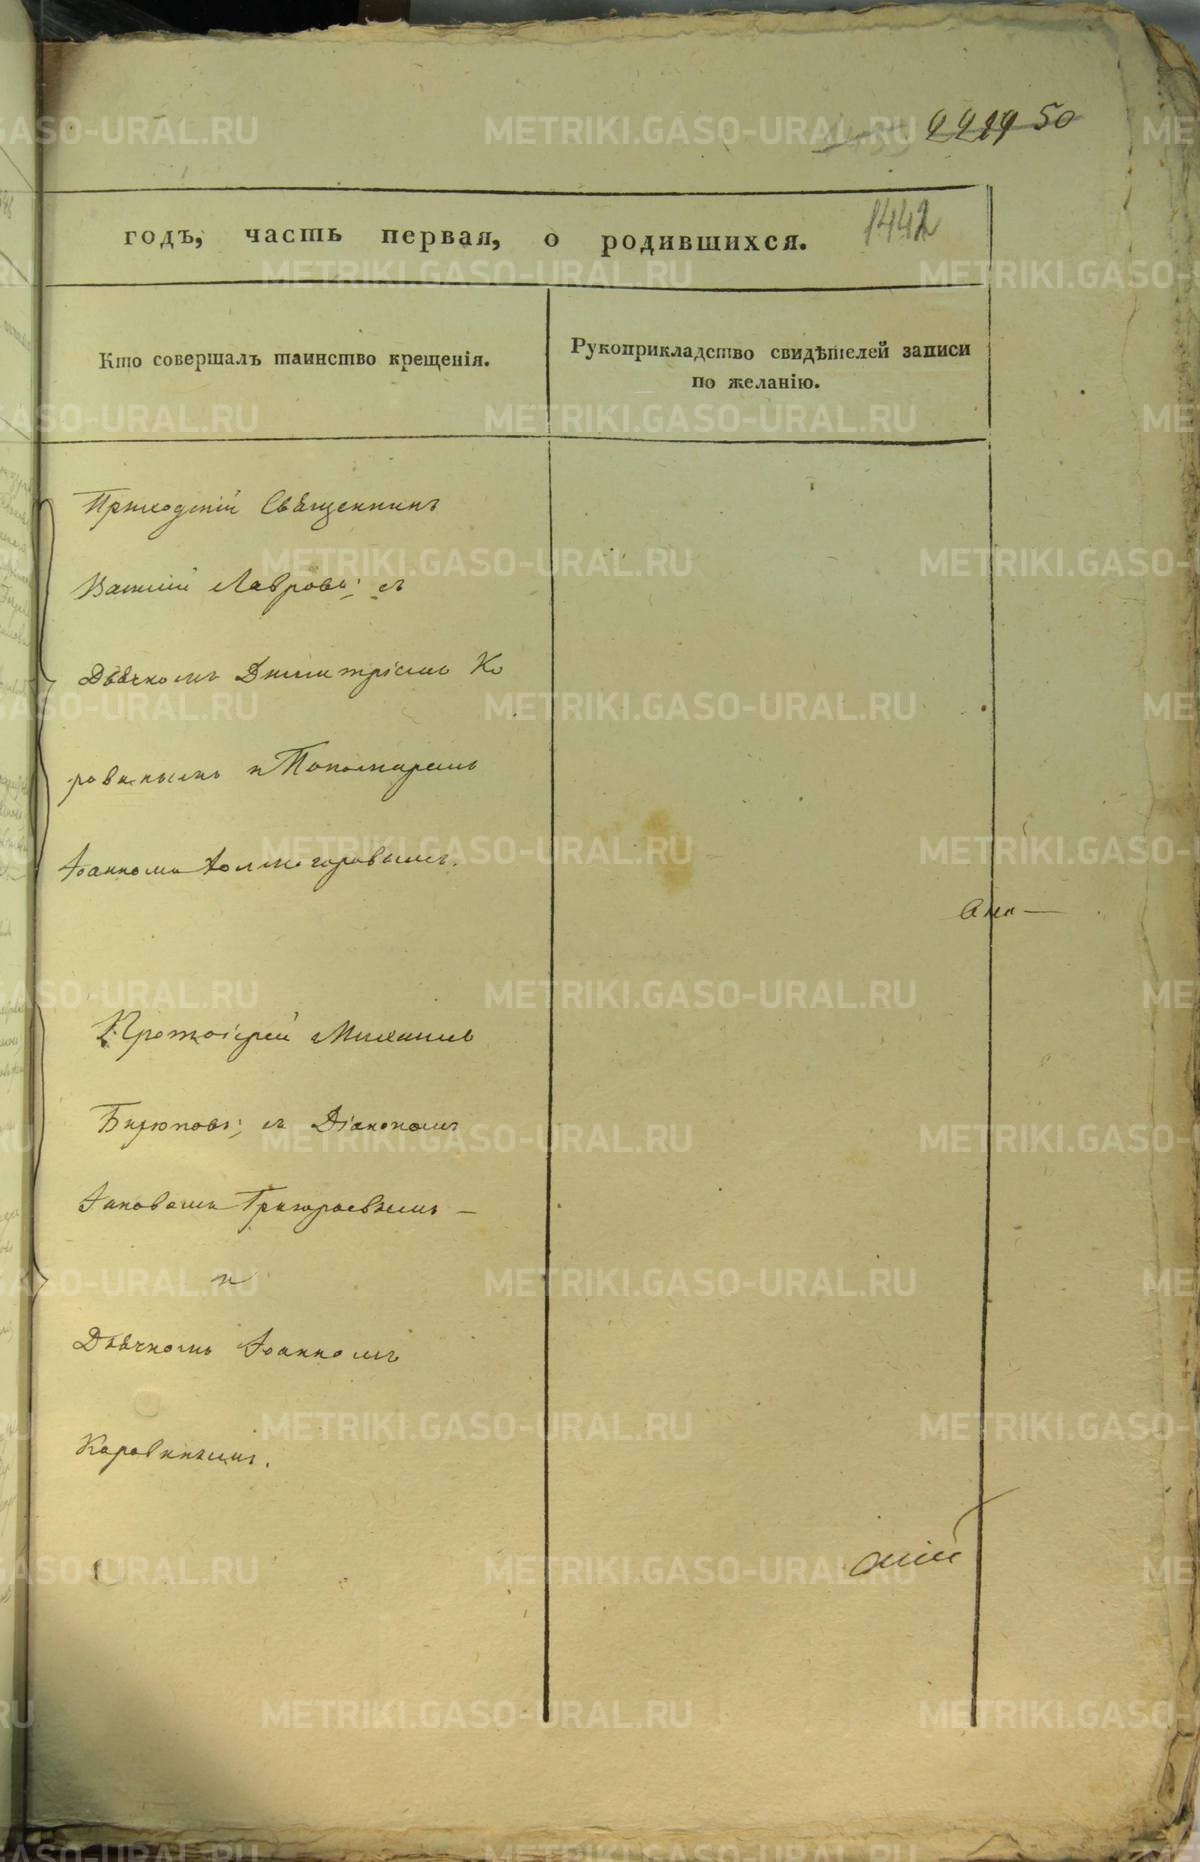 50
1442
годъ, часть первая, о родившихся.
Кто совершалъ таинство крещенія.
Рукоприкладство свидѣтелей записи
по желанію.
Приходскій Священникъ
Василій Лавровъ; съ
Дьячкомъ Димитріемъ Ко
ровинымъ и Пономаремъ
Іоанномъ Холмогоровымъ.
Протоіерей Михаилъ
Бирюковъ; съ Діакономъ
Іаковомъ Григорьевымъ —
и
Дьячкомъ Іоанномъ
Коровинымъ.
METRIKI.GASO-URAL.RU